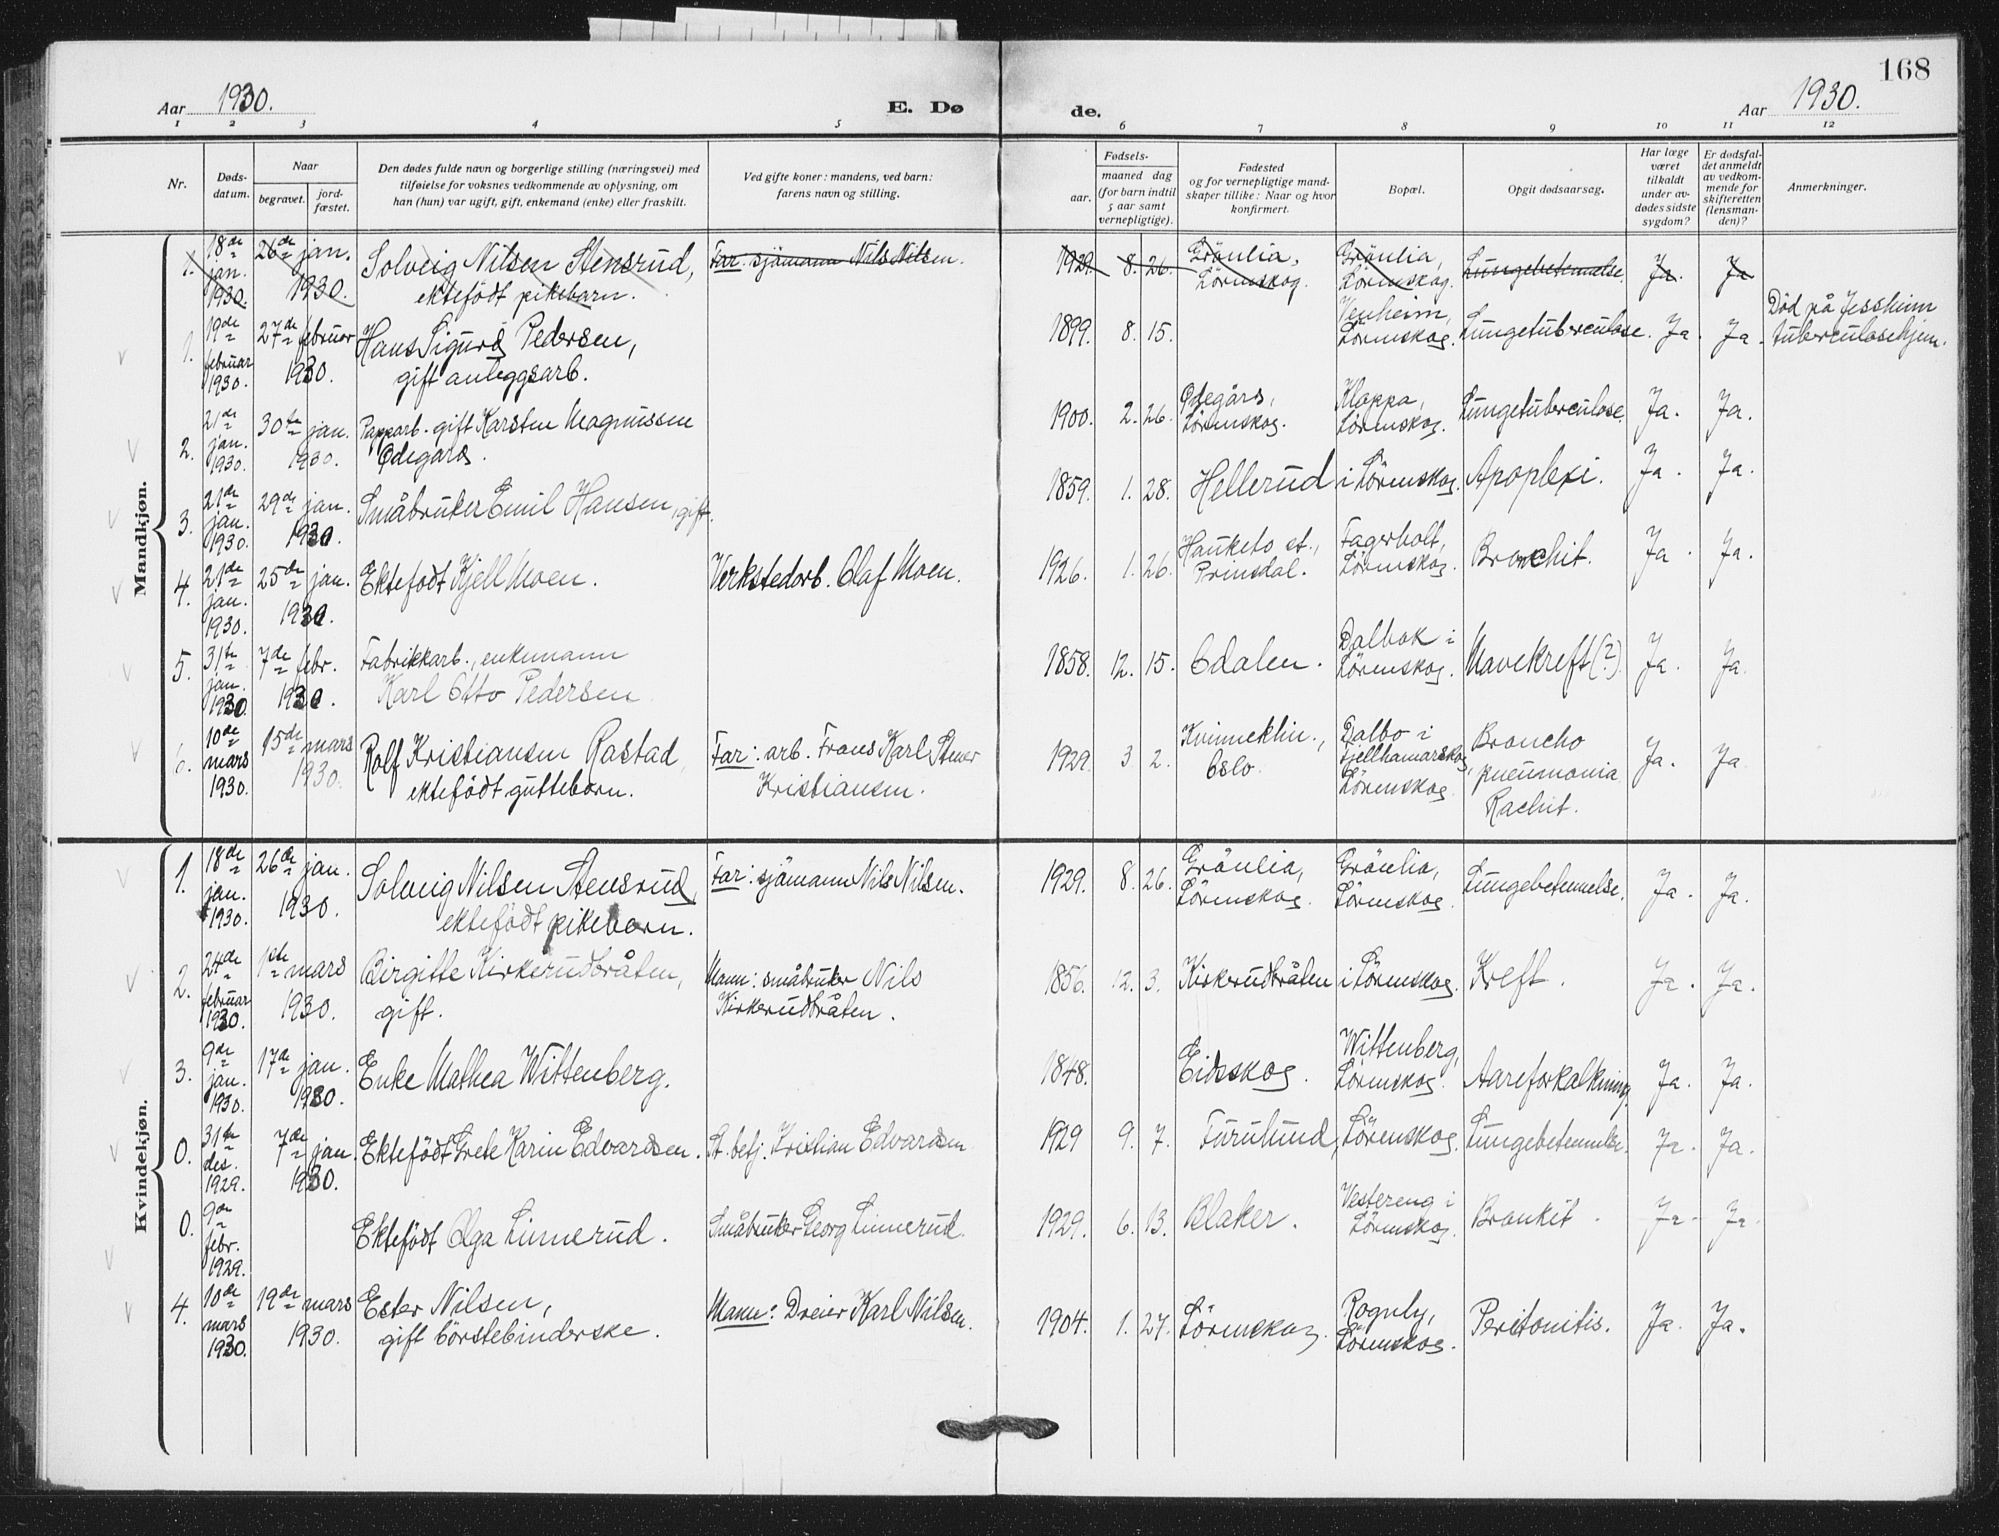 168
Aar 1930. E. Døde. Aar 1930.
1 2 3 4 5 6 7 8 9 10 11 12
Nr.
Døds-
datum.
Naar
begravet.
jord-
fæstet.
Den dødes fulde navn og borgerlige stilling (næringsvei) med
tilføielse for voksnes vedkommende av oplysning, om
han (hun) var ugift, gift, enkemand (enke) eller fraskilt.
Ved gifte koner: mandens, ved barn:
farens navn og stilling.
Fødsels-
aar.
maaned dag
(for barn indtil
5 aar samt
vernepligtige).
Fødested
og for vernepligtige mand-
skaper tillike: Naar og hvor
konfirmert.
Bopæl.
Opgit dødsaarsag.
Har læge
været
tilkaldt
under av-
dødes sidste
sygdom?
Er dødsfal-
det anmeldt
av vedkom-
mende for
skifteretten
(lensman-
den)?
Anmerkninger.
Mandkjøn.
1. 18de jan. 1930. 26de jan. 1930. Solveig Nilsen Stensrud,
ektefödt pikebarn. Far: sjömann Nils Nilsen. 1929. 8. 26. Grönlia,
Lörenskog. Grönlia,
Lörenskog. Lungebetennelse. Ja. Ja
1. 19de februar 1930. 27de februar 1930. Hans Sigurd Pedersen,
gift anleggsarb. 1899. 8. 15. Venheim,
Lörenskog. Lungetuberculose. Ja. Ja. Död på Jessheim
tuberculosehjem.
2. 21de jan. 1930. 30te jan. 1930. Papparb. gift Karsten Magnussen
Ødegård. 1900. 2. 26. Ødegård,
Lörenskog. Kloppa,
Lörenskog. Lungetuberculose. Ja. Ja.
3. 21de jan. 1930. 29de jan. 1930. Småbruker Emil Hansen, gift. 1859. 1. 28. Hellerud i Lörenskog. Apoplexi. Ja. Ja.
4. 21de jan. 1930. 25de jan. 1930. Ektefödt Kjell Moen. Verkstedarb. Olaf Moen. 1926. 1. 26. Hauketo st.,
Prinsdal. Fagerholt,
Lörenskog. Bronchit. Ja. Ja.
5. 31te jan. 1930. 7de febr. 1930. Fabrikkarb., enkemann
Karl Otto Pedersen 1858. 12. 15. Odalen. Dalbak i
Lörenskog. Mavekreft (?). Ja. Ja.
6. 10de mars 1930. 15de mars 1930. Rolf Kristiansen Rastad,
ektefödt guttebarn. Far: arb. Frans Karl Stener
Kristiansen. 1929. 3 2. Kvinneklin.,
Oslo. Dalbo i
Fjellhamarskog,
Lörenskog. Broncho
pneumonia
Rachit. Ja. Ja
Kvindekjøn.
1. 18de jan. 1930. 26de jan. 1930. Solveig Nilsen Stensrud,
ektefödt pikebarn. Far: sjömann Nils Nilsen. 1929. 8. 26. Grönlia,
Lörenskog. Grönlia,
Lörenskog. Lungebetennelse. Ja. Ja.
2. 24de februar 1930. 1ste mars 1930. Birgitte Kirkerudbråten,
gift. Mann: småbruker Nils
Kirkerudbråten. 1856. 12. 3. Kirkerudbråten i Lörenskog. Kreft. Ja. Ja.
3. 9de jan. 1930. 17de jan. 1930. Enke Mathea Wittenberg. 1848. Eidsskog. Wittenberg,
Lörenskog. Aareforkalkning. Ja. Ja.
0. 31te des. 1929. 7de jan. 1930. Ektefödt Grete Karin Edvardsen. St. betj. Kristian Edvardsen 1929 9. 7. Furulund, Lörenskog. Lungebetennelse. Ja. Ja.
0. 9de febr. 1929. Ektefödt Olga Linnerud. Småbruker Georg Linnerud. 1929. 6. 13. Blaker. Vestereng i
Lörenskog. Bronkit. Ja. Ja.
4. 10de mars 1930. 19de mars 1930. Ester Nilsen,
gift börstebinderske. Mann: Dreier Karl Nilsen. 1904. 1. 27. Lörenskog. Rognly,
Lörenskog. Peritonitis. Ja. Ja.